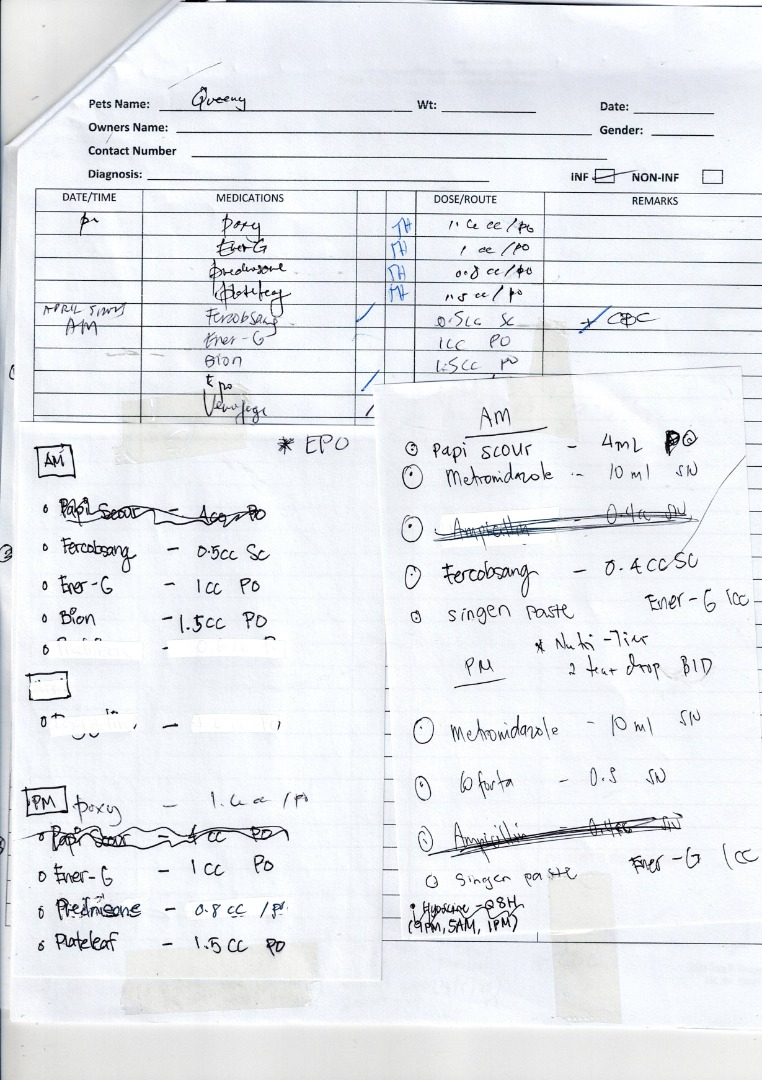 Pets Name: Queeny Wt: Date:
Owners Name: Gender:
Contact Number
Diagnosis: INF NON-INF
DATE/TIME MEDICATIONS DOSE/ROUTE REMARKS
Doxy cc / po
Ener-G 1 cc / po
Prednisone 0.8 cc / po
Plateleaf 1.5 cc / po
APRIL Fercobsang 0.5cc SC + CBC
AM Ener-G 1cc PO
Bion 1.5cc PO
Epo
* EPO
AM
Papi Scour - 4cc PO
Fercobsang - 0.5cc SC
Ener-G - 1cc PO
Bion - 1.5cc PO
PM Doxy - cc / po
Papi Scour - 4 cc PO
Ener-G - 1 cc PO
Prednisone - 0.8 cc / po
Plateleaf - 1.5 cc PO
AM
Papi scour - 4mL PO
Metronidazole - 10 ml SN
Ampicillin - 0.4cc SN
Fercobsang - 0.4 cc SC
Ener-G 1cc
singen paste
* Nutri-Tier
2 tear drop BID
PM
Metronidazole - 10 ml SN
Coforta - 0.5 SN
Ampicillin - 0.4cc SN
Ener-G 1cc
singen paste
Hyoscine - Q8H
(9PM, 5AM, 1PM)